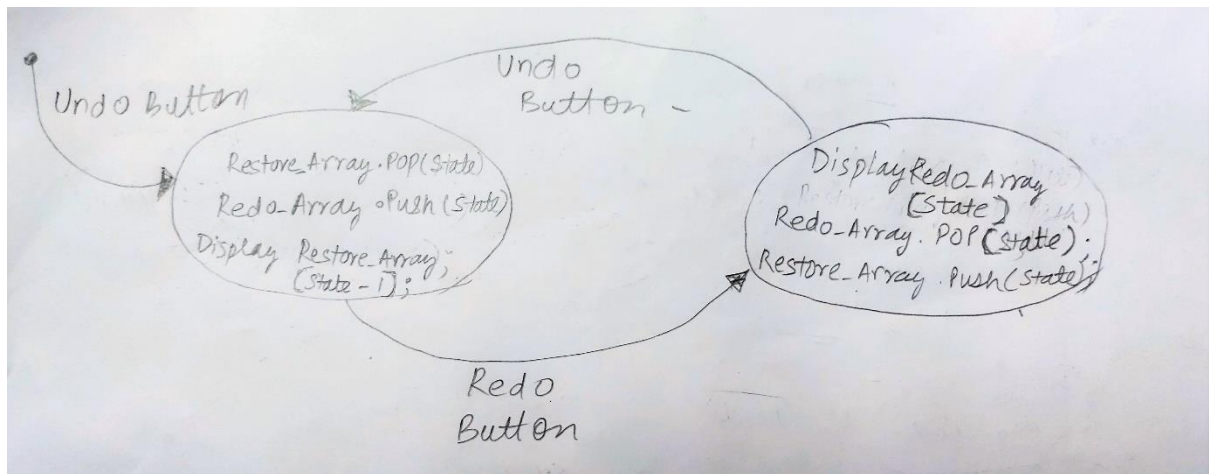 Undo Button
Undo
Button -
Restore_Array.POP(State)
Redo_Array.Push(State)
Display Restore_Array;
[State-1];
Display Redo_Array
[State]
Redo_Array.POP(State);
Restore_Array.Push(State);
Redo
Button